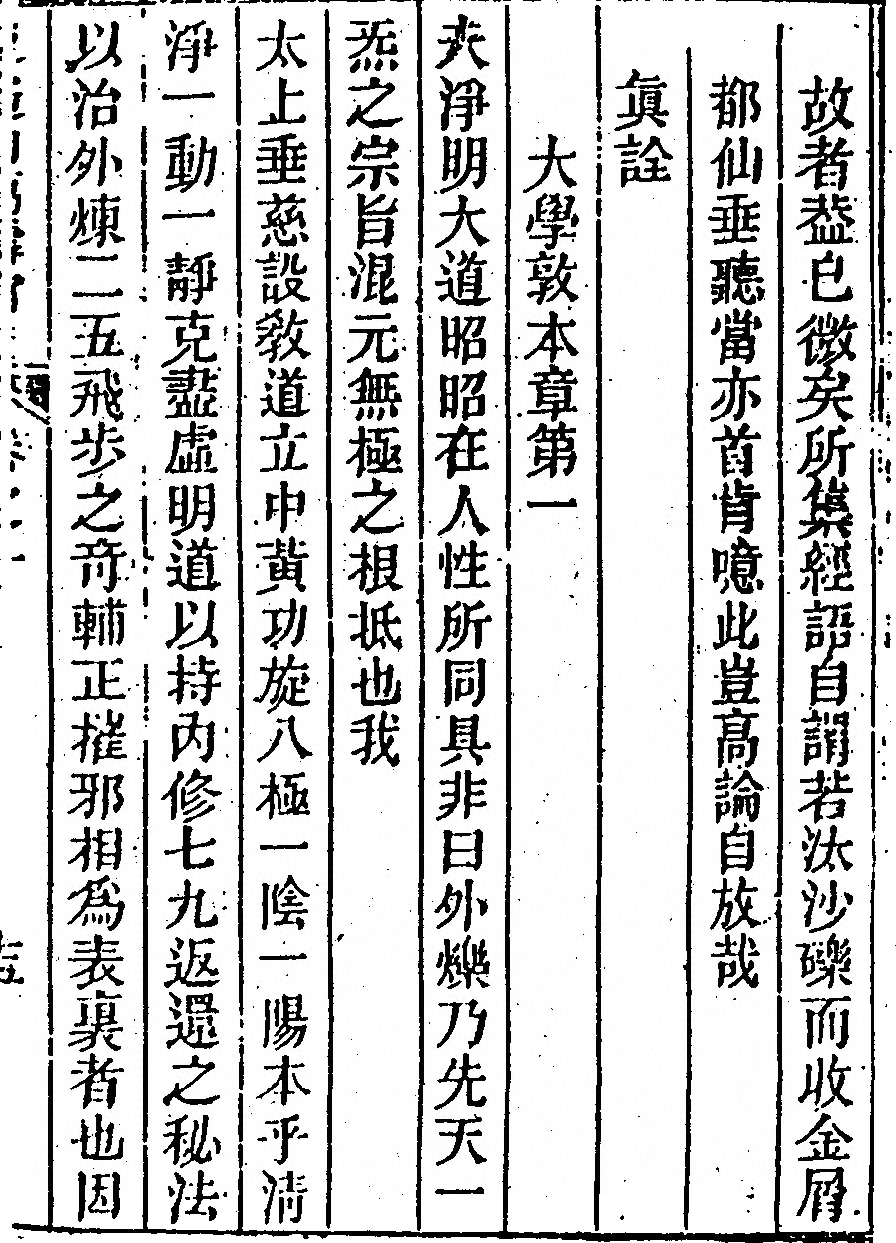 故者葢已微矣所集經語自謂若汰沙礫而收金屑
都仙垂聽當亦首肯噫此豈高論自放哉
眞詮
大學敦本章第一
夫淨明大道昭昭在人性所同具非曰外爍乃先天一
炁之宗旨混元無極之根抵也我
太上垂慈設敎道立中黃功旋八極一陰一陽本乎清
淨一動一靜克盡虛明道以持內修七九返還之秘法
以治外煉二五飛步之奇輔正摧邪相爲表裏者也因